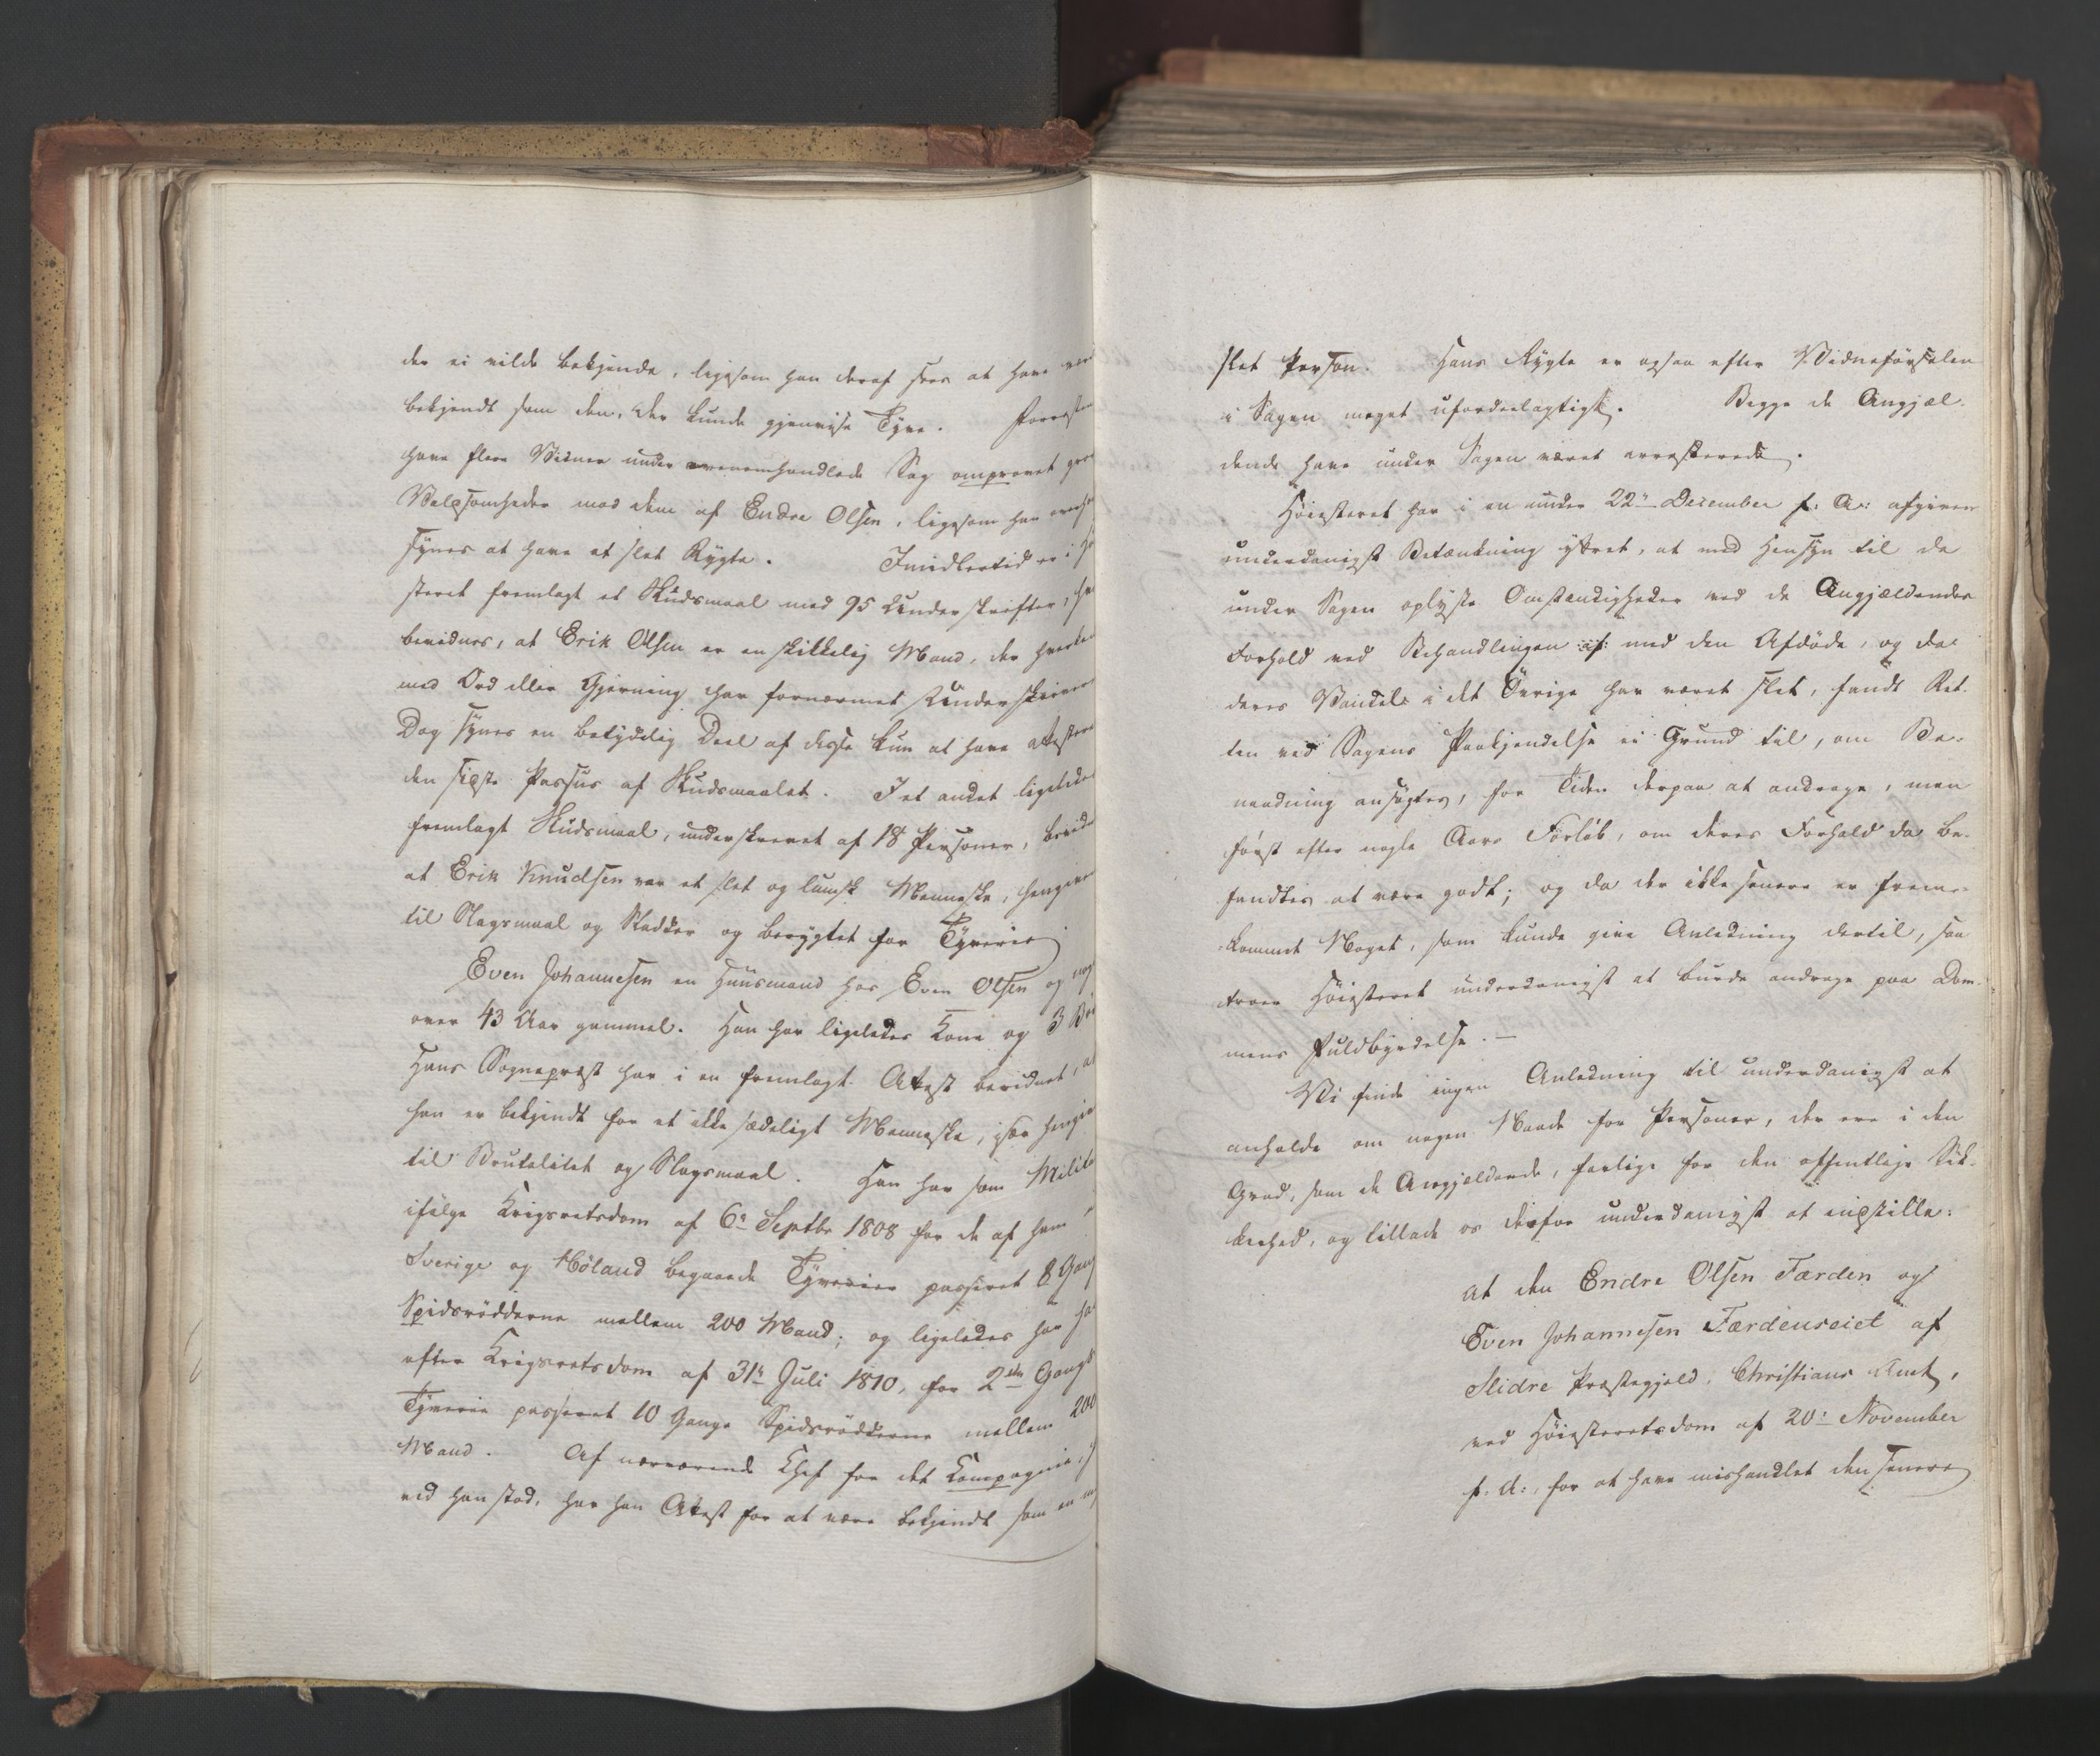 der ei vilde bekjende, ligesom han deraf sees at have
bekjendt som den, der kunde gjenvise Tyve.
have flere Vidner under ommeldte Sag omprovet
Voldsomheder mod dem af Endre Olsen, ligesom han
synes at have et slet Rygte. Imidlertid er i
steret fremlagt et Skudsmaal med 95 Underskrifter,
bevidnes, at Erik Olsen er en skikkelig Mand, der hverken
med Ord eller Gjerning har fornærmet Underskriverne
Dog synes en betydelig Deel af disse kun at have attesteret
den sidste Passus af Skudsmaalet. I et andet ligeledes
fremlagt Skudsmaal, underskrevet af 18 Personer, bevidnes
at Erik Knudsen var et slet og lumsk Menneske, hengiven
til Slagsmaal og Kladder og berygtet for Tyverie
Even Johannesen en Huusmand hos Even Olsen og
over 43 Aar gammel. Han har ligeledes Kone og 3
Hans Sognepræst har i en fremlagt Attest bevidnet, at
han er bekjendt for et ikke sædeligt Menneske, især
til Brutalitet og Slagsmaal. Han har som
ifølge Krigsretsdom af 6te Septbr 1808 for de af ham i
Sverige og Höland begaaede Tyverier passeret 8 Gange
Spidsrödderne mellem 200 Mand; og ligeledes har han
efter Krigsretsdom af 31te Juli 1810, for 2den Gangs
Tyverie passeret 10 Gange Spidsrödderne mellem 200
Mand. Af nærværende Chef for det Compagnie,
ved han stod, har han Attest for at være bekjendt som en
slet Person. Hans Rygte er ogsaa efter Vidneførselen
i Sagen meget ufordeelagtigt. Begge de Angjæl
dende have under Sagen været arresterede.
Höiesteret har i en under 22de December f: A: afgiven
underdanigst Betænkning yttret, at med Hensyn til de
under Sagen oplyste Omstændigheder ved de Angjældendes
Forhold ved Behandlingen af med den Afdöde, og da
deres Vandel i det Övrige har været slet, fandt Ret-
ten ved Sagens Paakjendelse ei Grund til, om Be-
naadning ansögtes, for Tiden derpaa at andrage, men
först efter nogle Aars Forlöb, om deres Forhold da be-
fandtes at være godt; og da der ikke senere er frem-
kommet Noget, som kunde give Anledning dertil, saa
troer Höiesteret underdanigst at burde andrage paa Dom-
mens Fuldbyrdelse. –
Vi finde ingen Anledning til underdanigst at
anholde om nogen Naade for Personer, der ere i den
Grad, som de Angjældende, farlige for den offentlige Sik-
kerhed, og tillade os derfor underdanigst at indstille:
at den Endre Olsen Færden og
Even Johannesen Færdenseiet af
Slidre Præstegjeld, Christians Amt,
ved Höiesteretsdom af 20de November
f: A:, for at have mishandlet den senere